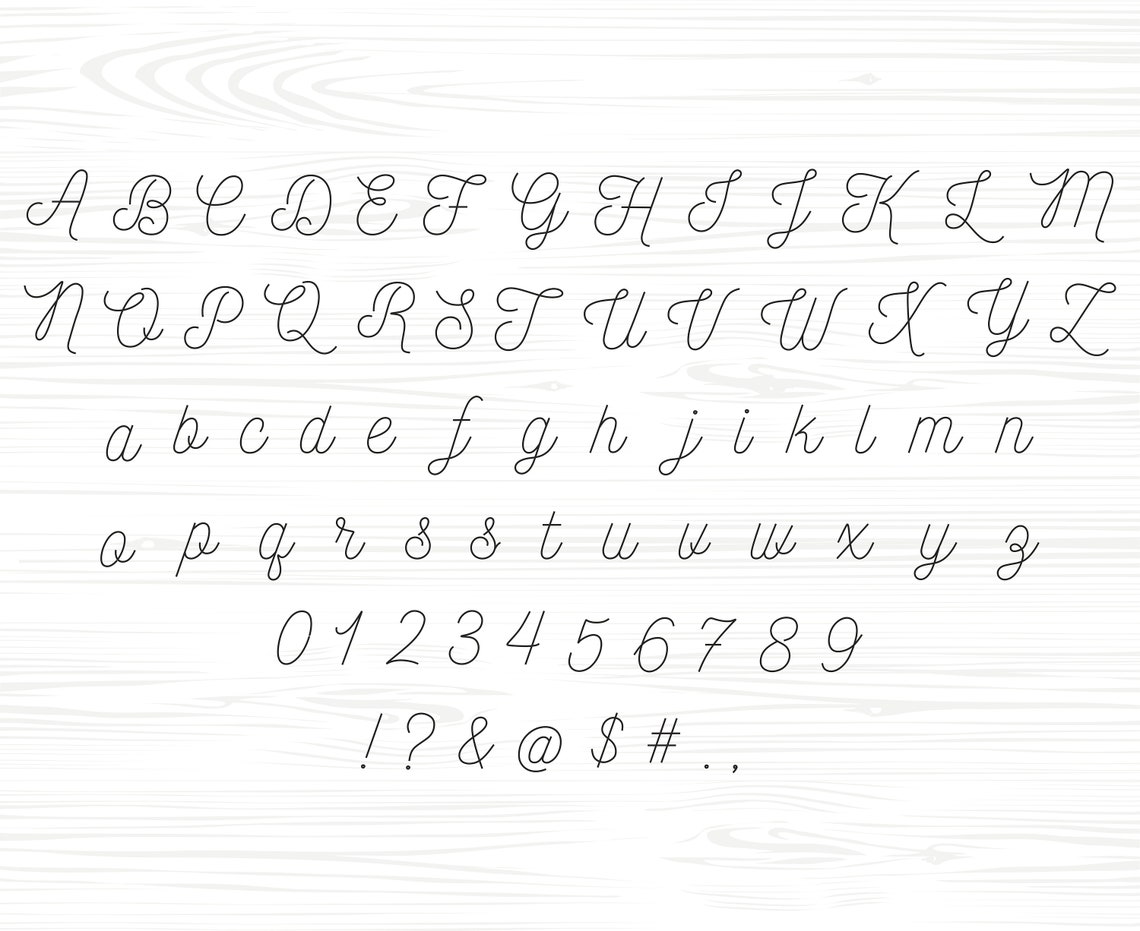 A B C D E F G H I J K L M
N O P Q R S T U V W X Y Z
a b c d e f g h j i k l m n
o p q r s s t u v w x y z
0 1 2 3 4 5 6 7 8 9
! ? & @ $ # . ,